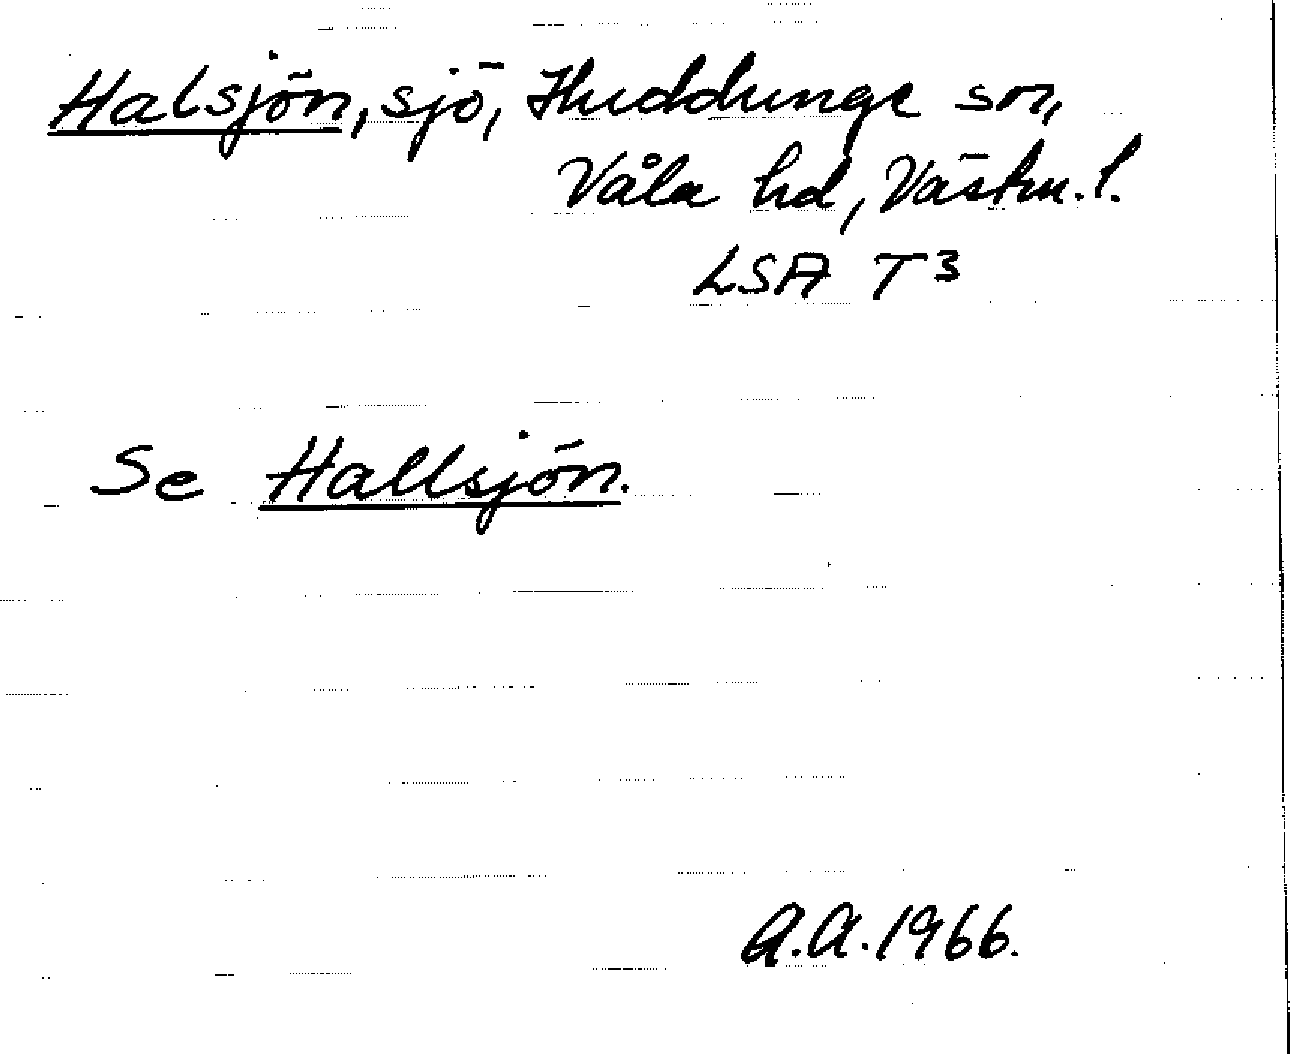 Halsjön, sjö, Huddunge sn,
Våla hd, Västm. l.
LSA T3
Se Hallsjön.
A.A. 1966.